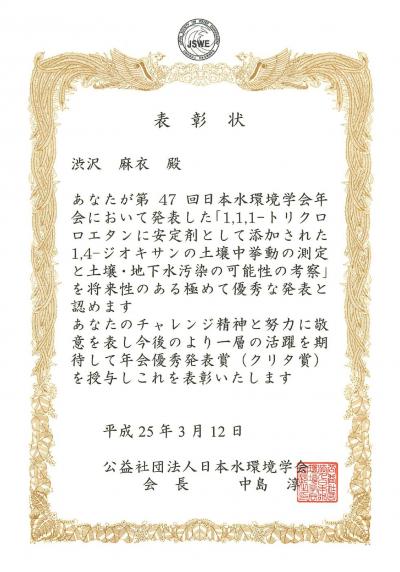 JSWE
表彰状
渋沢　麻衣　殿
あなたが第 47 回日本水環境学会年
会において発表した「1,1,1-トリクロ
ロエタンに安定剤として添加された
1,4-ジオキサンの土壌中挙動の測定
と土壌・地下水汚染の可能性の考察」
を将来性のある極めて優秀な発表と
認めます
あなたのチャレンジ精神と努力に敬
意を表し今後のより一層の活躍を期
待して年会優秀発表賞（クリタ賞）
を授与しこれを表彰いたします
平成 25 年 3 月 12 日
公益社団法人日本水環境学会
会　長　　中島　淳